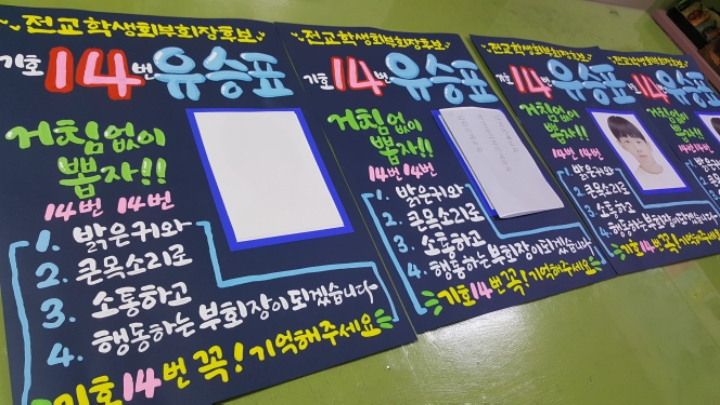 전교학생회부회장후보
기호 14번 유승표
거침없이
뽑자!!
14번 14번
1. 밝은귀와
2. 큰목소리로
3. 소통하고
4. 행동하는 부회장이되겠습니다
기호14번 꼭! 기억해주세요
전교학생회부회장후보
기호 14번 유승표
거침없이
뽑자!!
14번 14번
1. 밝은귀와
2. 큰목소리로
3. 소통하고
4. 행동하는 부회장이되겠습니다
기호14번 꼭! 기억해주세요
전교학생회부회장후보
기호 14번 유승표
거침없이
뽑자!!
14번 14번
1. 밝은귀와
2. 큰목소리로
3. 소통하고
4. 행동하는 부회장이되겠습니다
기호14번 꼭! 기억해주세요
전교학생회부회장후보
기호 14번 유승표
거침없이
뽑자!!
14번 14번
1. 밝은귀와
2. 큰목소리로
3. 소통하고
4. 행동하는
기호14번 꼭!